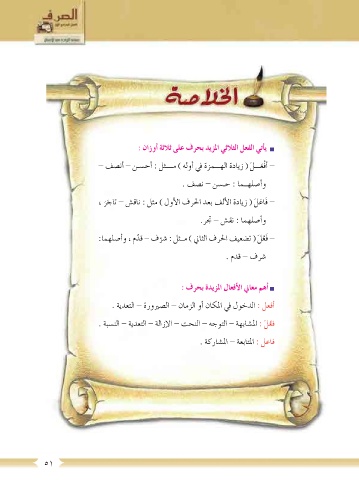 الصرف
الخلاصة
يأتي الفعل الثلاثي المزيد بحرف على ثلاثة أوزان :
– أفْعَـلَ ( زيادة الهـمزة في أوله ) مـثل : أحسـن – أنصف –
وأصلهـما : حسـن – نصف .
– فاعَلَ ( زيادة الألف بعد الحرف الأول ) مثل : ناقش – تاجَرَ ،
وأصلهما : نقش – تَجر .
– فَعَّلَ ( تضعيف الحرف الثاني ) مـثل : شرّف – قدّم ، وأصلهما:
شرف – قدم .
أهم معاني الأفعال المزيدة بحرف :
أفعل : الدخول في المكان أو الزمان – الصيرورة – التعدية .
فعّل : المشابهة – التوجه – النحت – الإزالة – التعدية – النسبة .
فاعل : المتابعة – المشاركة .
٥١